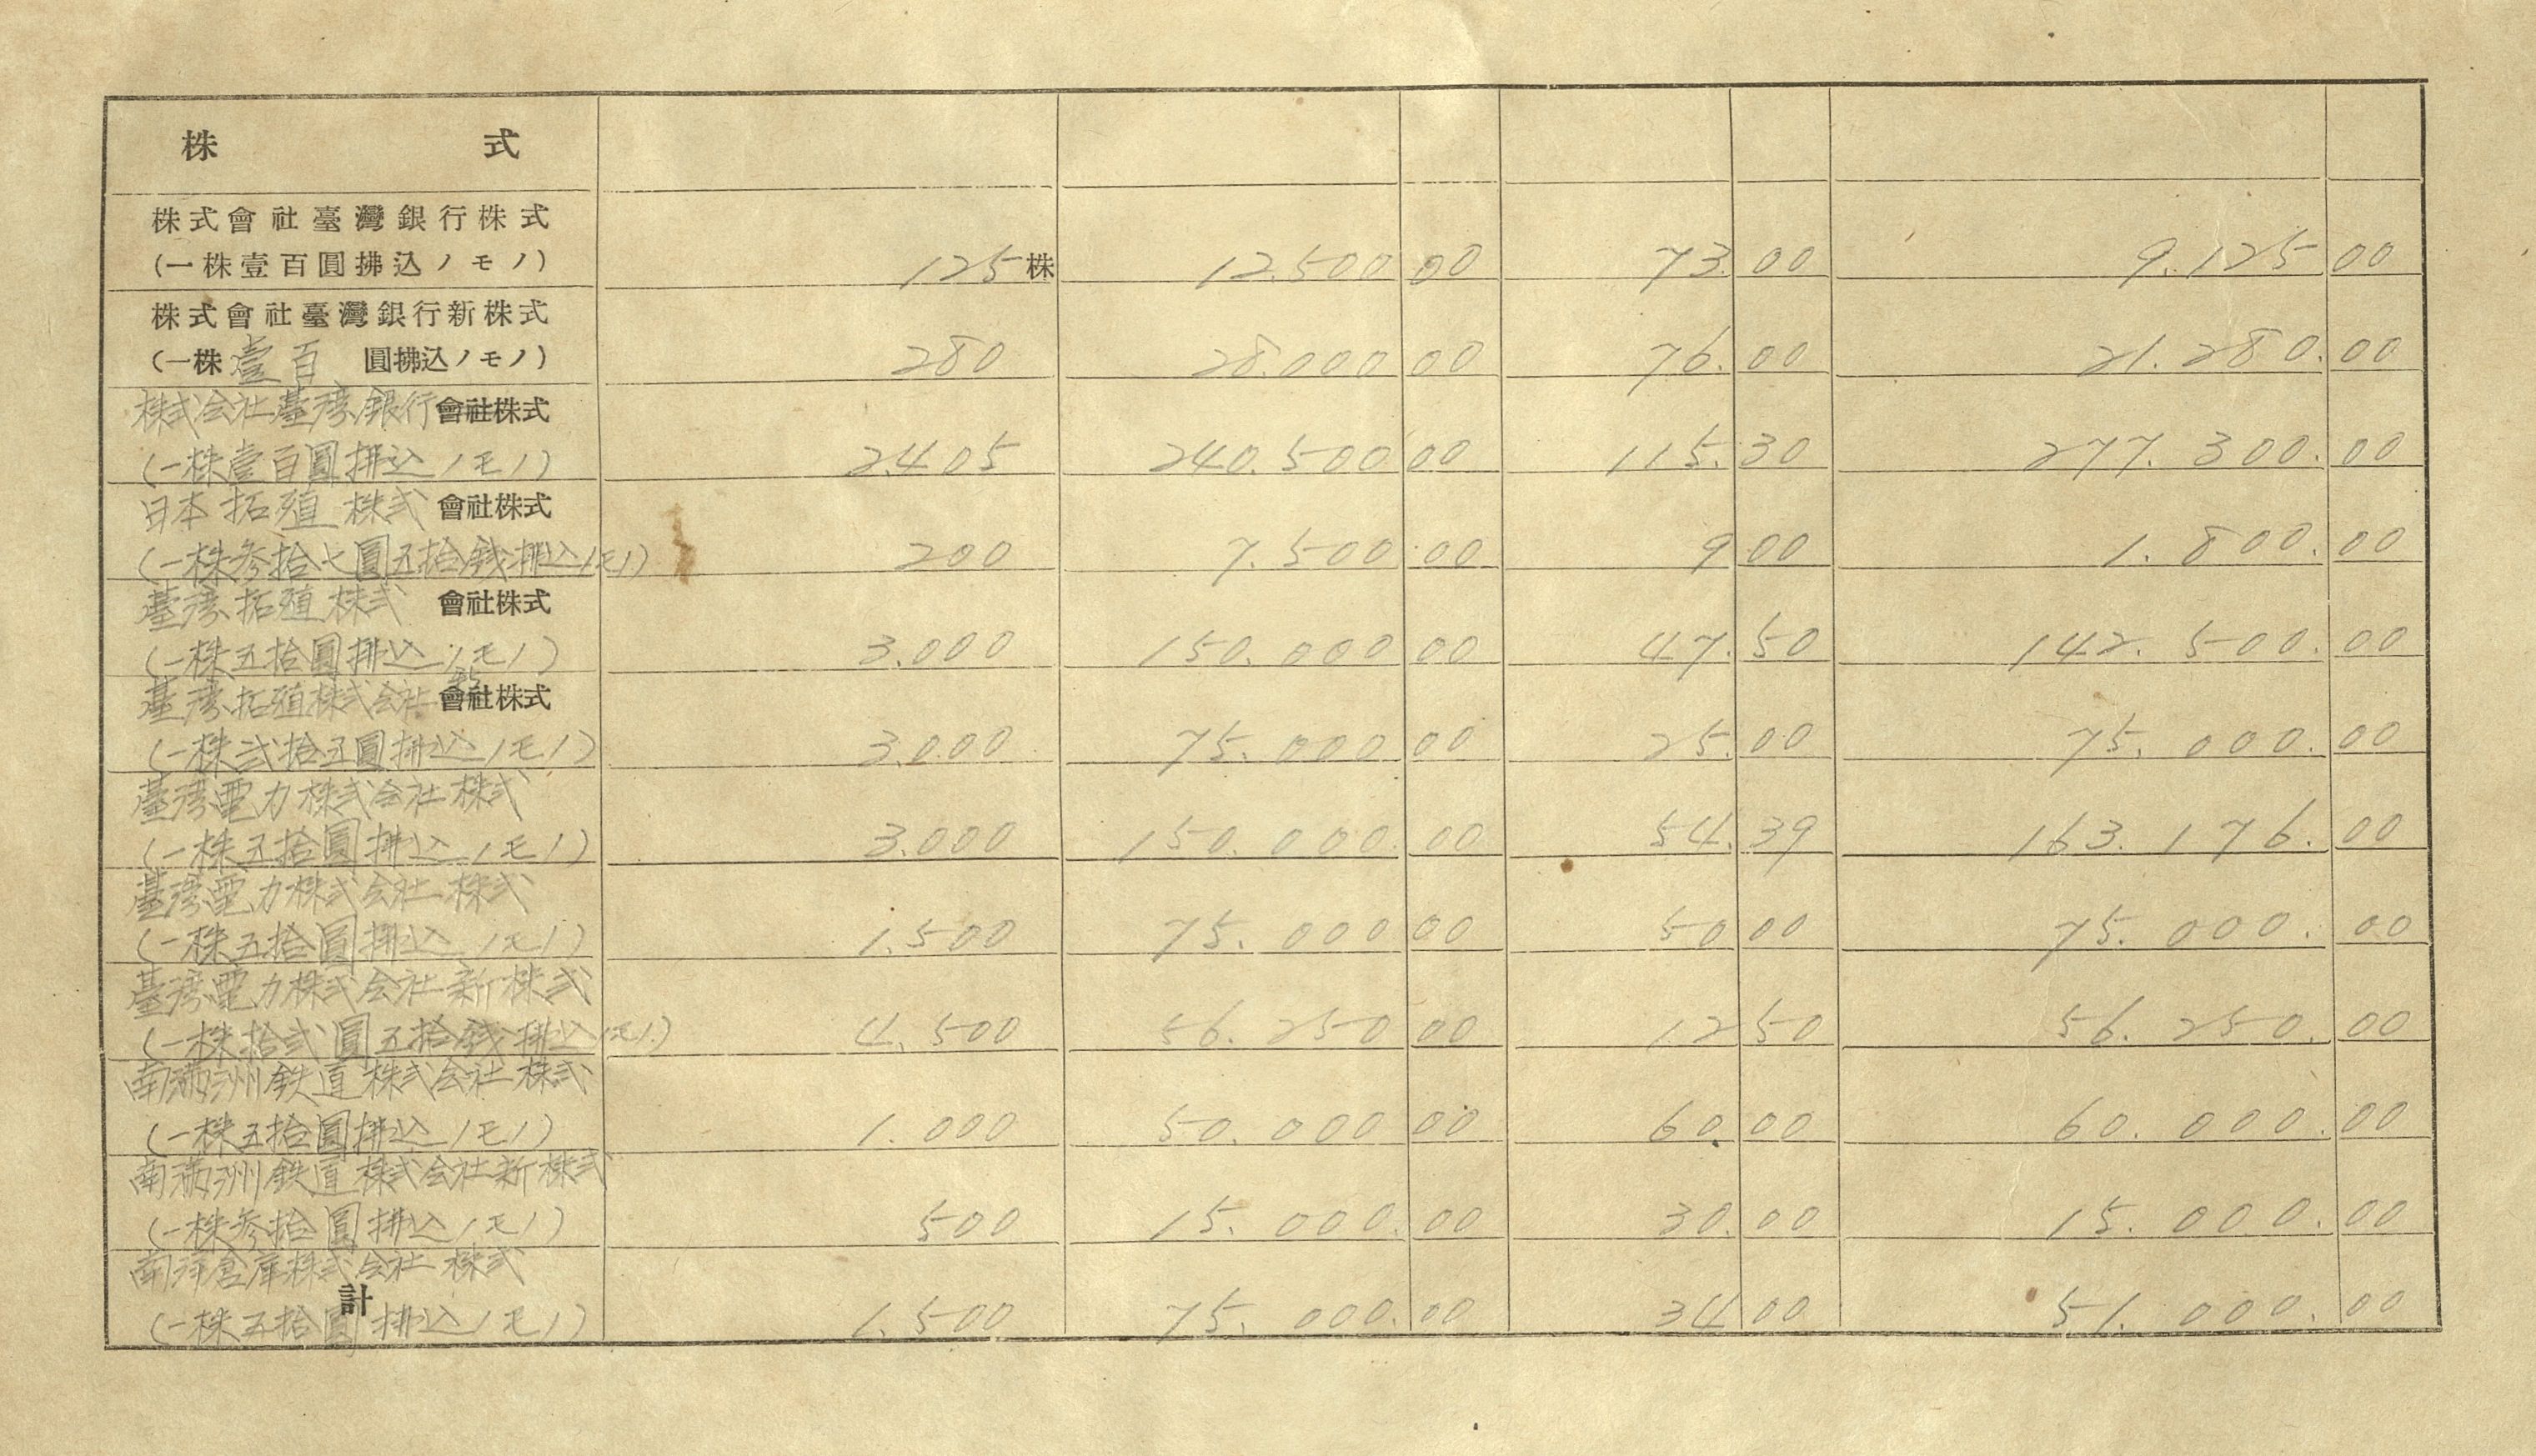 株式
株式會社臺灣銀行株式
(一株壹百圓拂込ノモノ) 125株 12.500 00 73.00 9.125 00
株式會社臺灣銀行新株式
(一株壹百圓拂込ノモノ) 280 28.000 00 76.00 21.280.00
株式会社臺湾銀行會社株式
(一株壹百圓拂込ノモノ) 2.405 240.500 00 115.30 277.300.00
日本拓殖株式會社株式
(一株参拾七圓五拾銭拂込ノモノ) 200 7.500 00 9 00 1.800.00
臺湾拓殖株式會社株式
(一株五拾圓拂込ノモノ) 3.000 150.000 00 47.50 142.500.00
臺湾拓殖株式会社新會社株式
(一株弐拾五圓拂込ノモノ) 3.000 75.000 00 25.00 75.000.00
臺湾電力株式会社株式
(一株五拾圓拂込ノモノ) 3.000 150.000.00 54.39 163.176.00
臺湾電力株式会社株式
(一株五拾圓拂込ノモノ) 1.500 75.000 00 50 00 75.000.00
臺湾電力株式会社新株式
(一株拾弐圓五拾銭拂込ノモノ) 4.500 56.250 00 12 50 56.250.00
南満洲鉄道株式会社株式
(一株五拾圓拂込ノモノ) 1.000 50.000 00 60.00 60.000.00
南満洲鉄道株式会社新株式
(一株参拾圓拂込ノモノ) 500 15.000.00 30.00 15.000.00
南洋倉庫株式会社株式
計
(一株五拾圓拂込ノモノ) 1.500 75.000.00 34 00 51.000.00